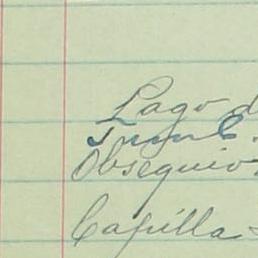 Lago d
Juan C.
Obsequio
Capilla